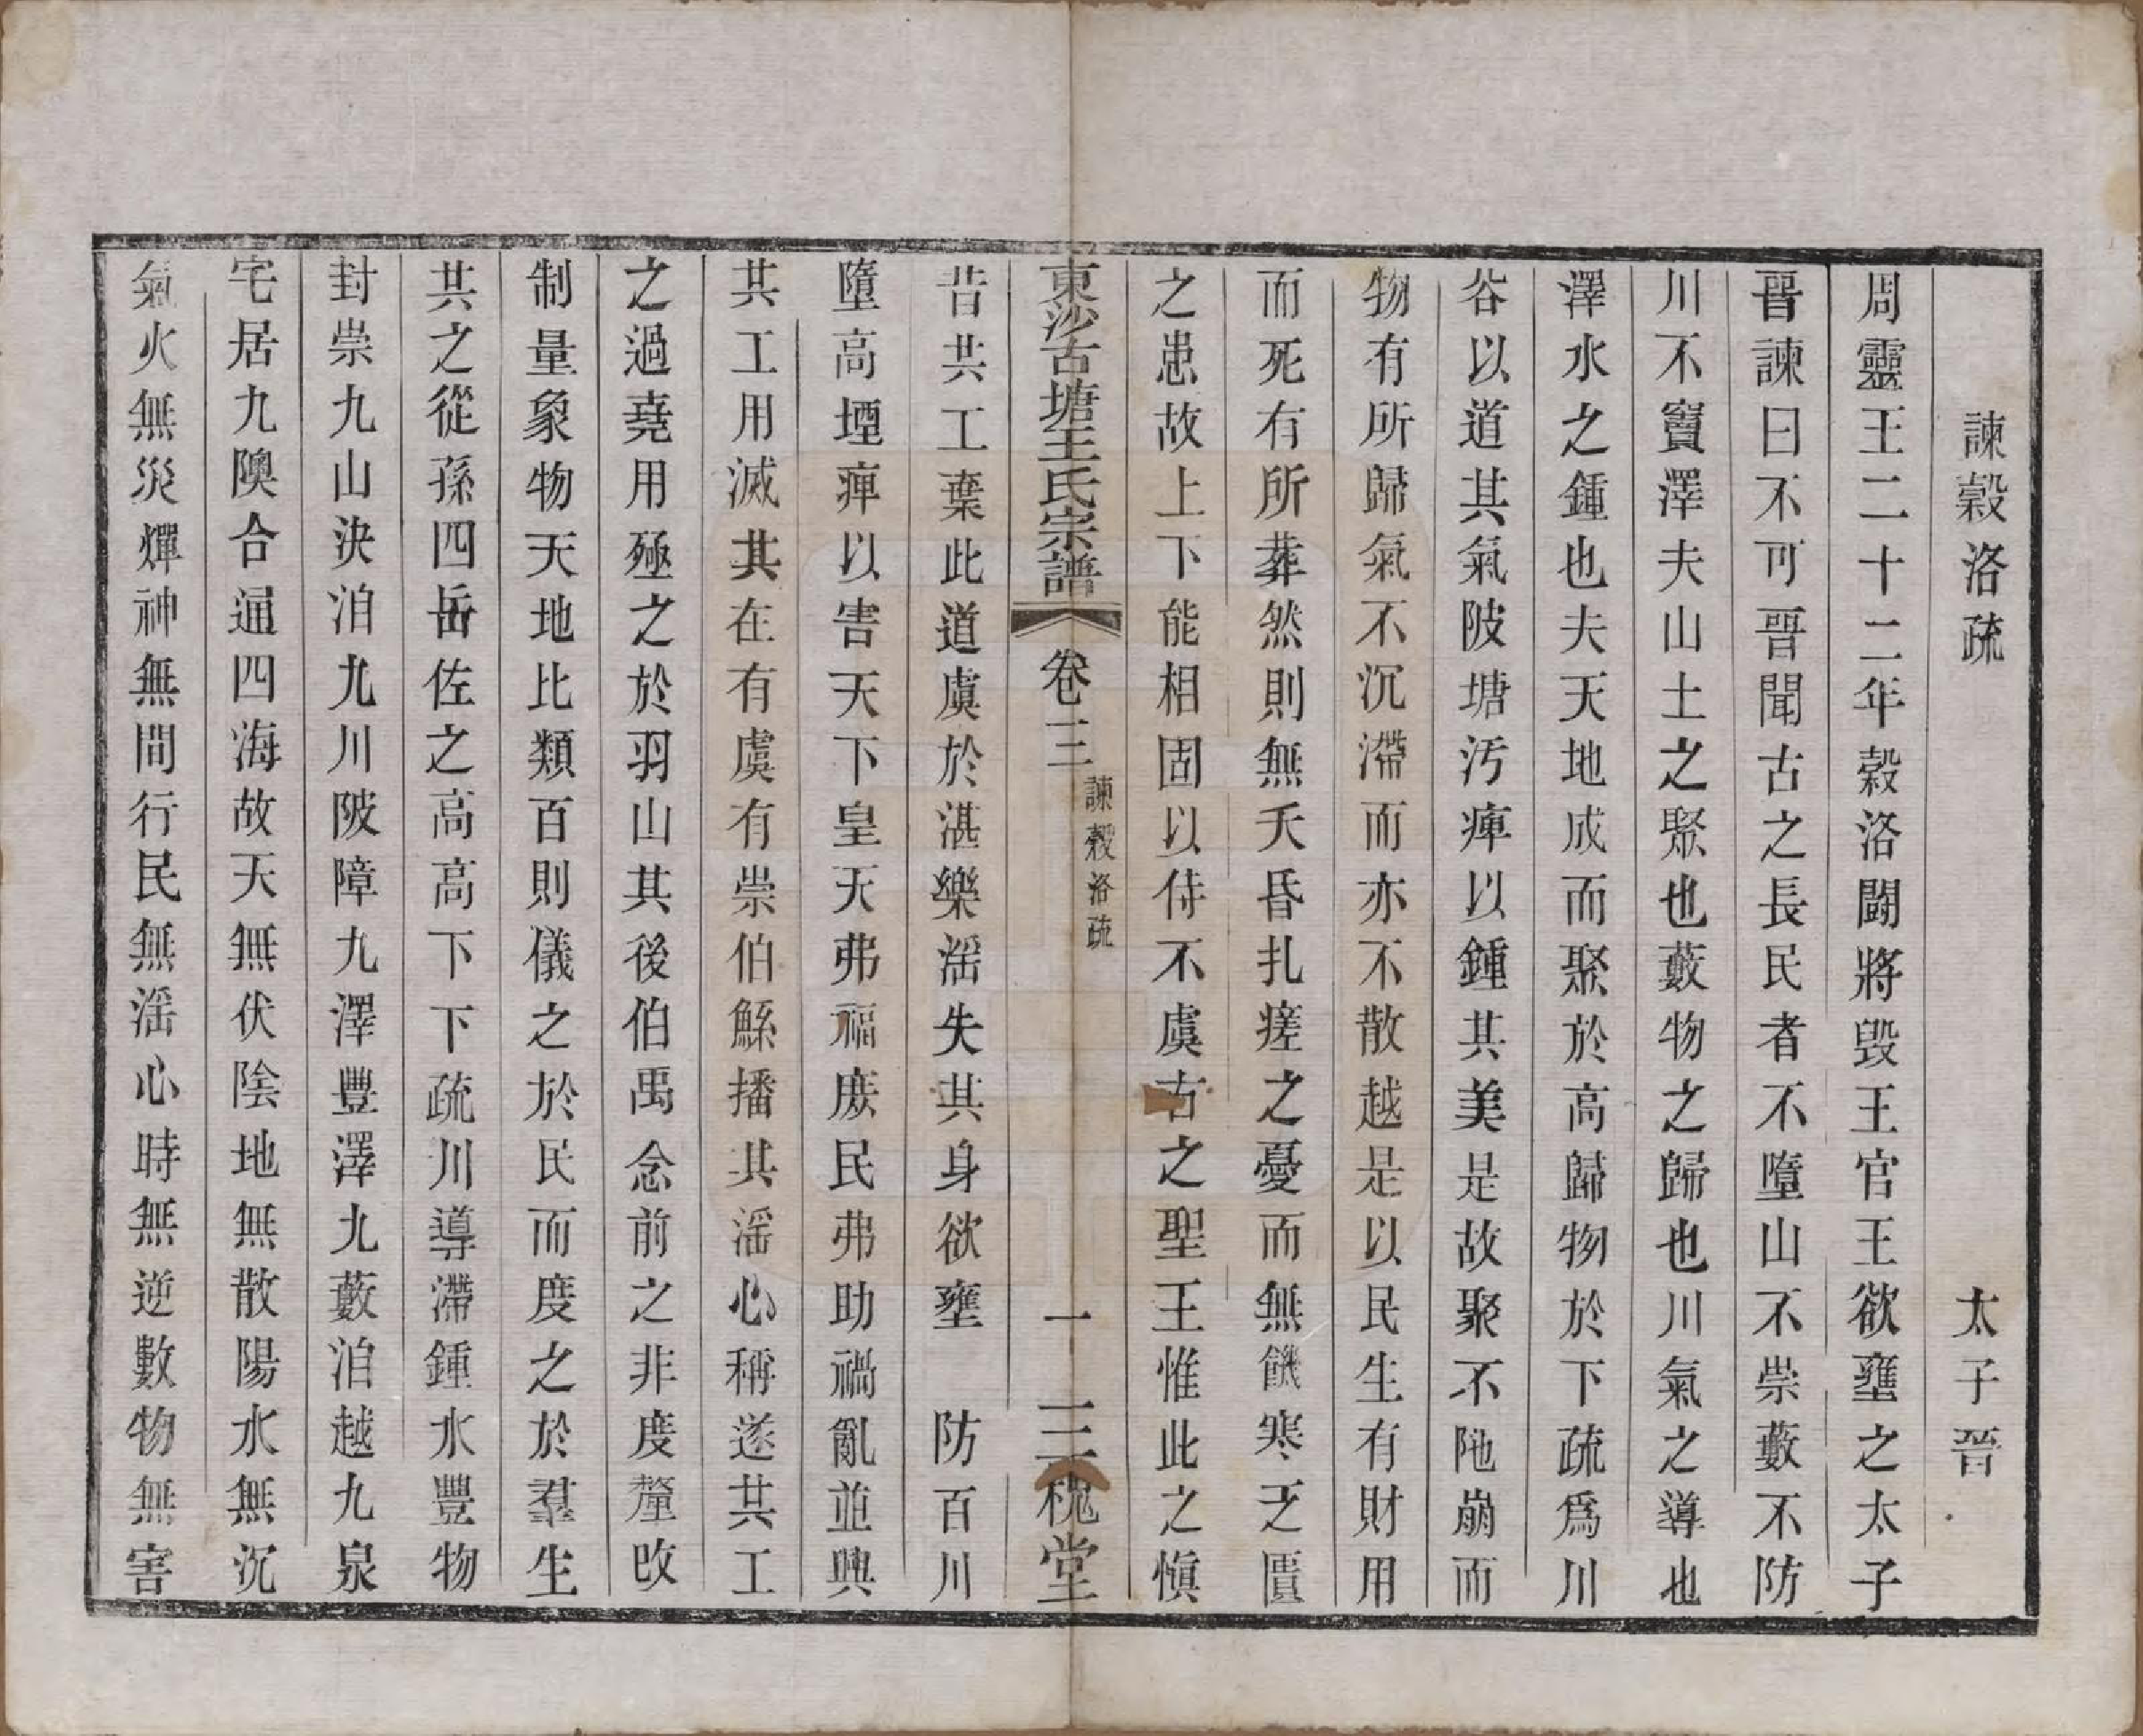 諫穀洛疏　太子晉
周靈王二十二年穀洛鬪將毀王官王欲壅之太子
晉諫曰不可晉聞古之長民者不墮山不崇藪不防
川不竇澤夫山土之聚也藪物之歸也川氣之導也
澤水之鍾也夫天地成而聚於高歸物於下疏爲川
谷以道其氣陂塘汚庳以鍾其美是故聚不阤崩而
物有所歸氣不沉滯而亦不散越是以民生有財用
而死有所葬然則無夭昏扎瘥之憂而無饑寒乏匱
之患故上下能相固以待不虞古之聖王惟此之愼
東沙古塘王氏宗譜　卷三　諫穀洛疏　一　三槐堂
昔共工棄此道虞於湛樂滛失其身欲壅　防百川
墮高堙庳以害天下皇天弗福庶民弗助禍亂並興
共工用滅其在有虞有崇伯鯀播其滛心稱遂共工
之過堯用殛之於羽山其後伯禹念前之非度釐改
制量象物天地比類百則儀之於民而度之於羣生
共之從孫四岳佐之高高下下疏川導滯鍾水豐物
封崇九山決汨九川陂障九澤豐澤九藪汨越九泉
宅居九隩合通四海故天無伏陰地無散陽水無沉
氣火無災燀神無間行民無滛心時無逆數物無害